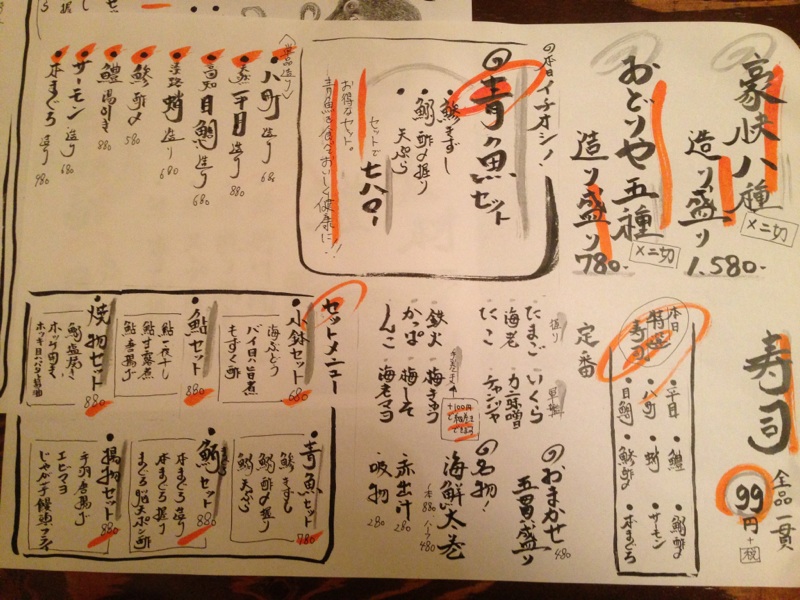 豪快八種
造り盛り
×二切
1.580-
おどりや五種
造り盛り
×二切
780-
の本日イチオシ!
青魚セット
鯵きずし
鰯酢〆握り
天ぷら
セットで
七八〇-
お得なセット。
青魚を食べておいしく健康に!!
〈単品造り〉
八町 造り 680
天然 平目 造り 880
高知 目鯛 造り 680
淡路 蛸 造り 680
鯵 酢〆 580
鱧 湯引き 880
サーモン 造り 680
本まぐろ 造り 980
寿司
全品一貫
99円+税
本日
特選
寿司
平目
鱧
鰯酢〆
八町
蛸
サーモン
目鯛
鯵酢〆
本まぐろ
定番
握り
たまご
海老
たこ
軍艦
いくら
カニ味噌
チャンジャ
鉄火
かっぱ
しんこ
梅きゅう
梅しそ
海老マヨ
+100円
おまかせ
五貫盛り
480
名物!
海鮮太巻
一本880 ハーフ480
赤出汁
280
吸物
280
セットメニュー
小鉢セット
海ぶどう
バイ貝旨煮
もずく酢
680
鮎セット
鮎一夜干し
鮎甘露煮
鮎唐揚げ
880
焼物セット
鰯塩焼き
ホッケ開き
ホッキ貝バター醤油
880
青魚セット
鯵きずし
鰯酢〆握り
鰯天ぷら
780
鮪セット
本まぐろ造り
本まぐろ握り
まぐろ脳天ポン酢
880
揚物セット
手羽唐揚げ
エビマヨ
じゃが子饅頭フライ
880